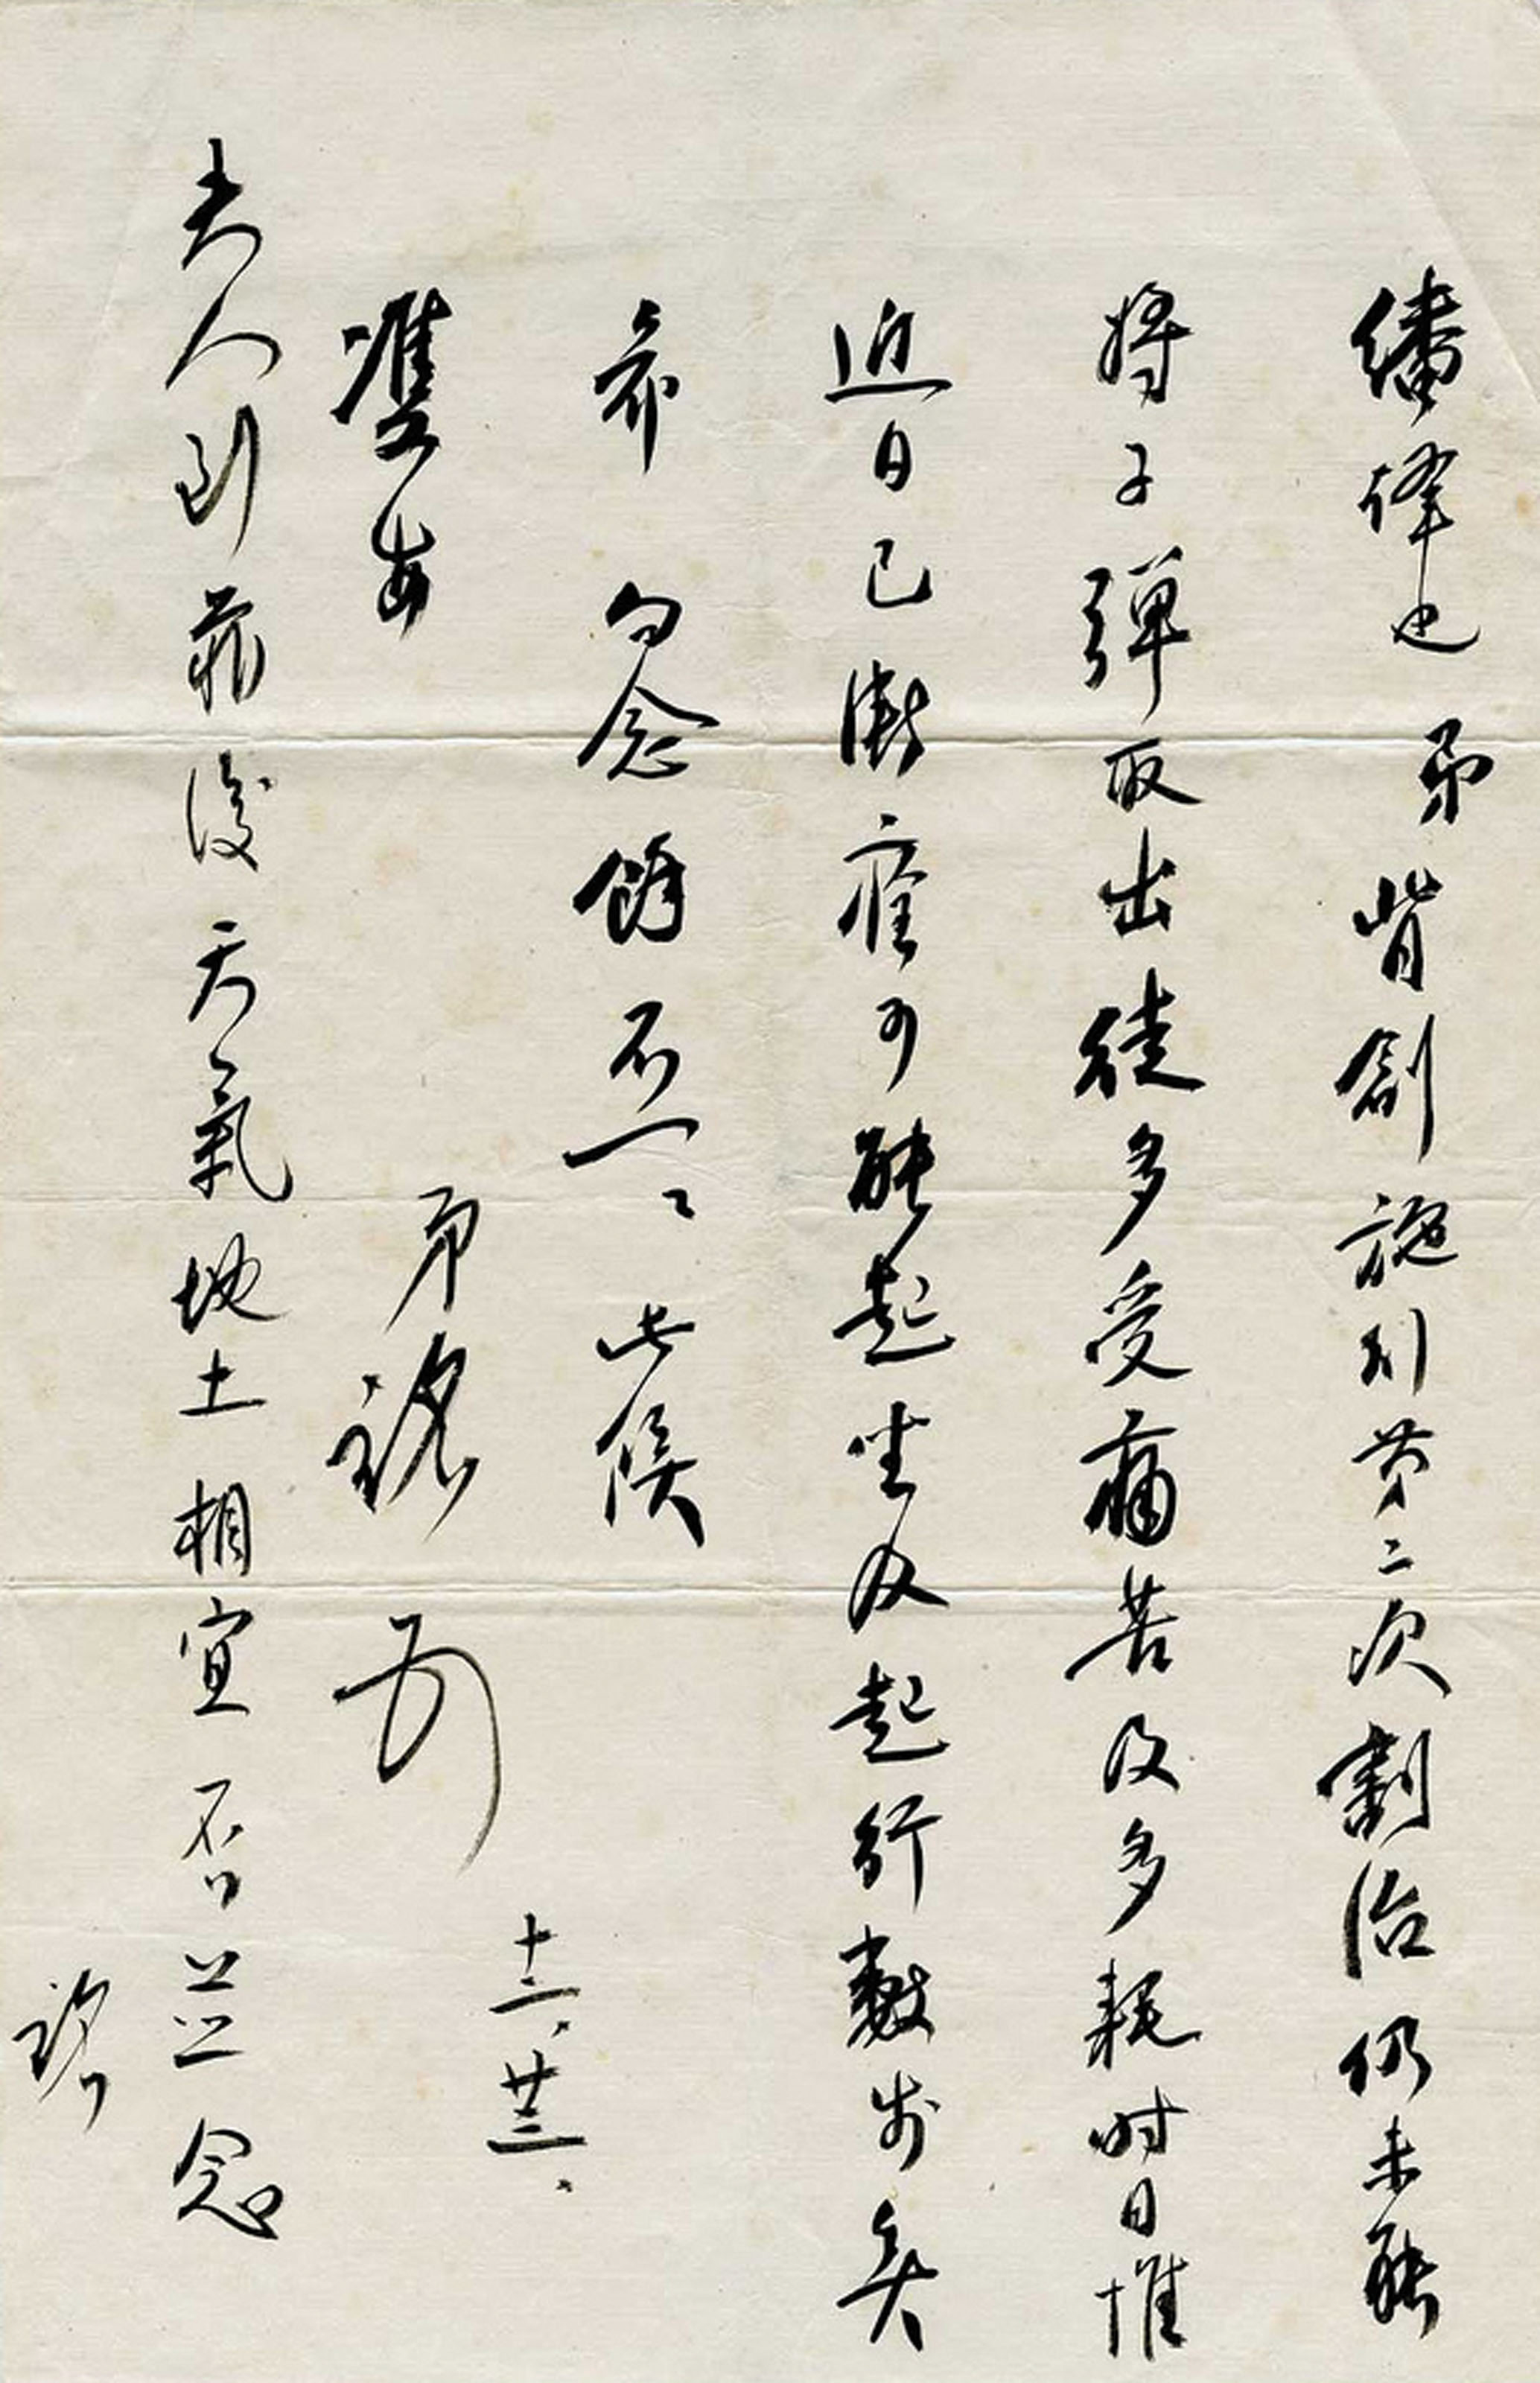 繙譯也 弟背創施刑第二次割治仍未能
將子彈取出徒多受痛苦及多耗時日惟
近日已漸痊可能起坐及起行數步矣
希 勿念餘不一一 此候
雙安
弟銘
十二、廿三、
夫人到菲後天氣地土相宜否並念
銘又